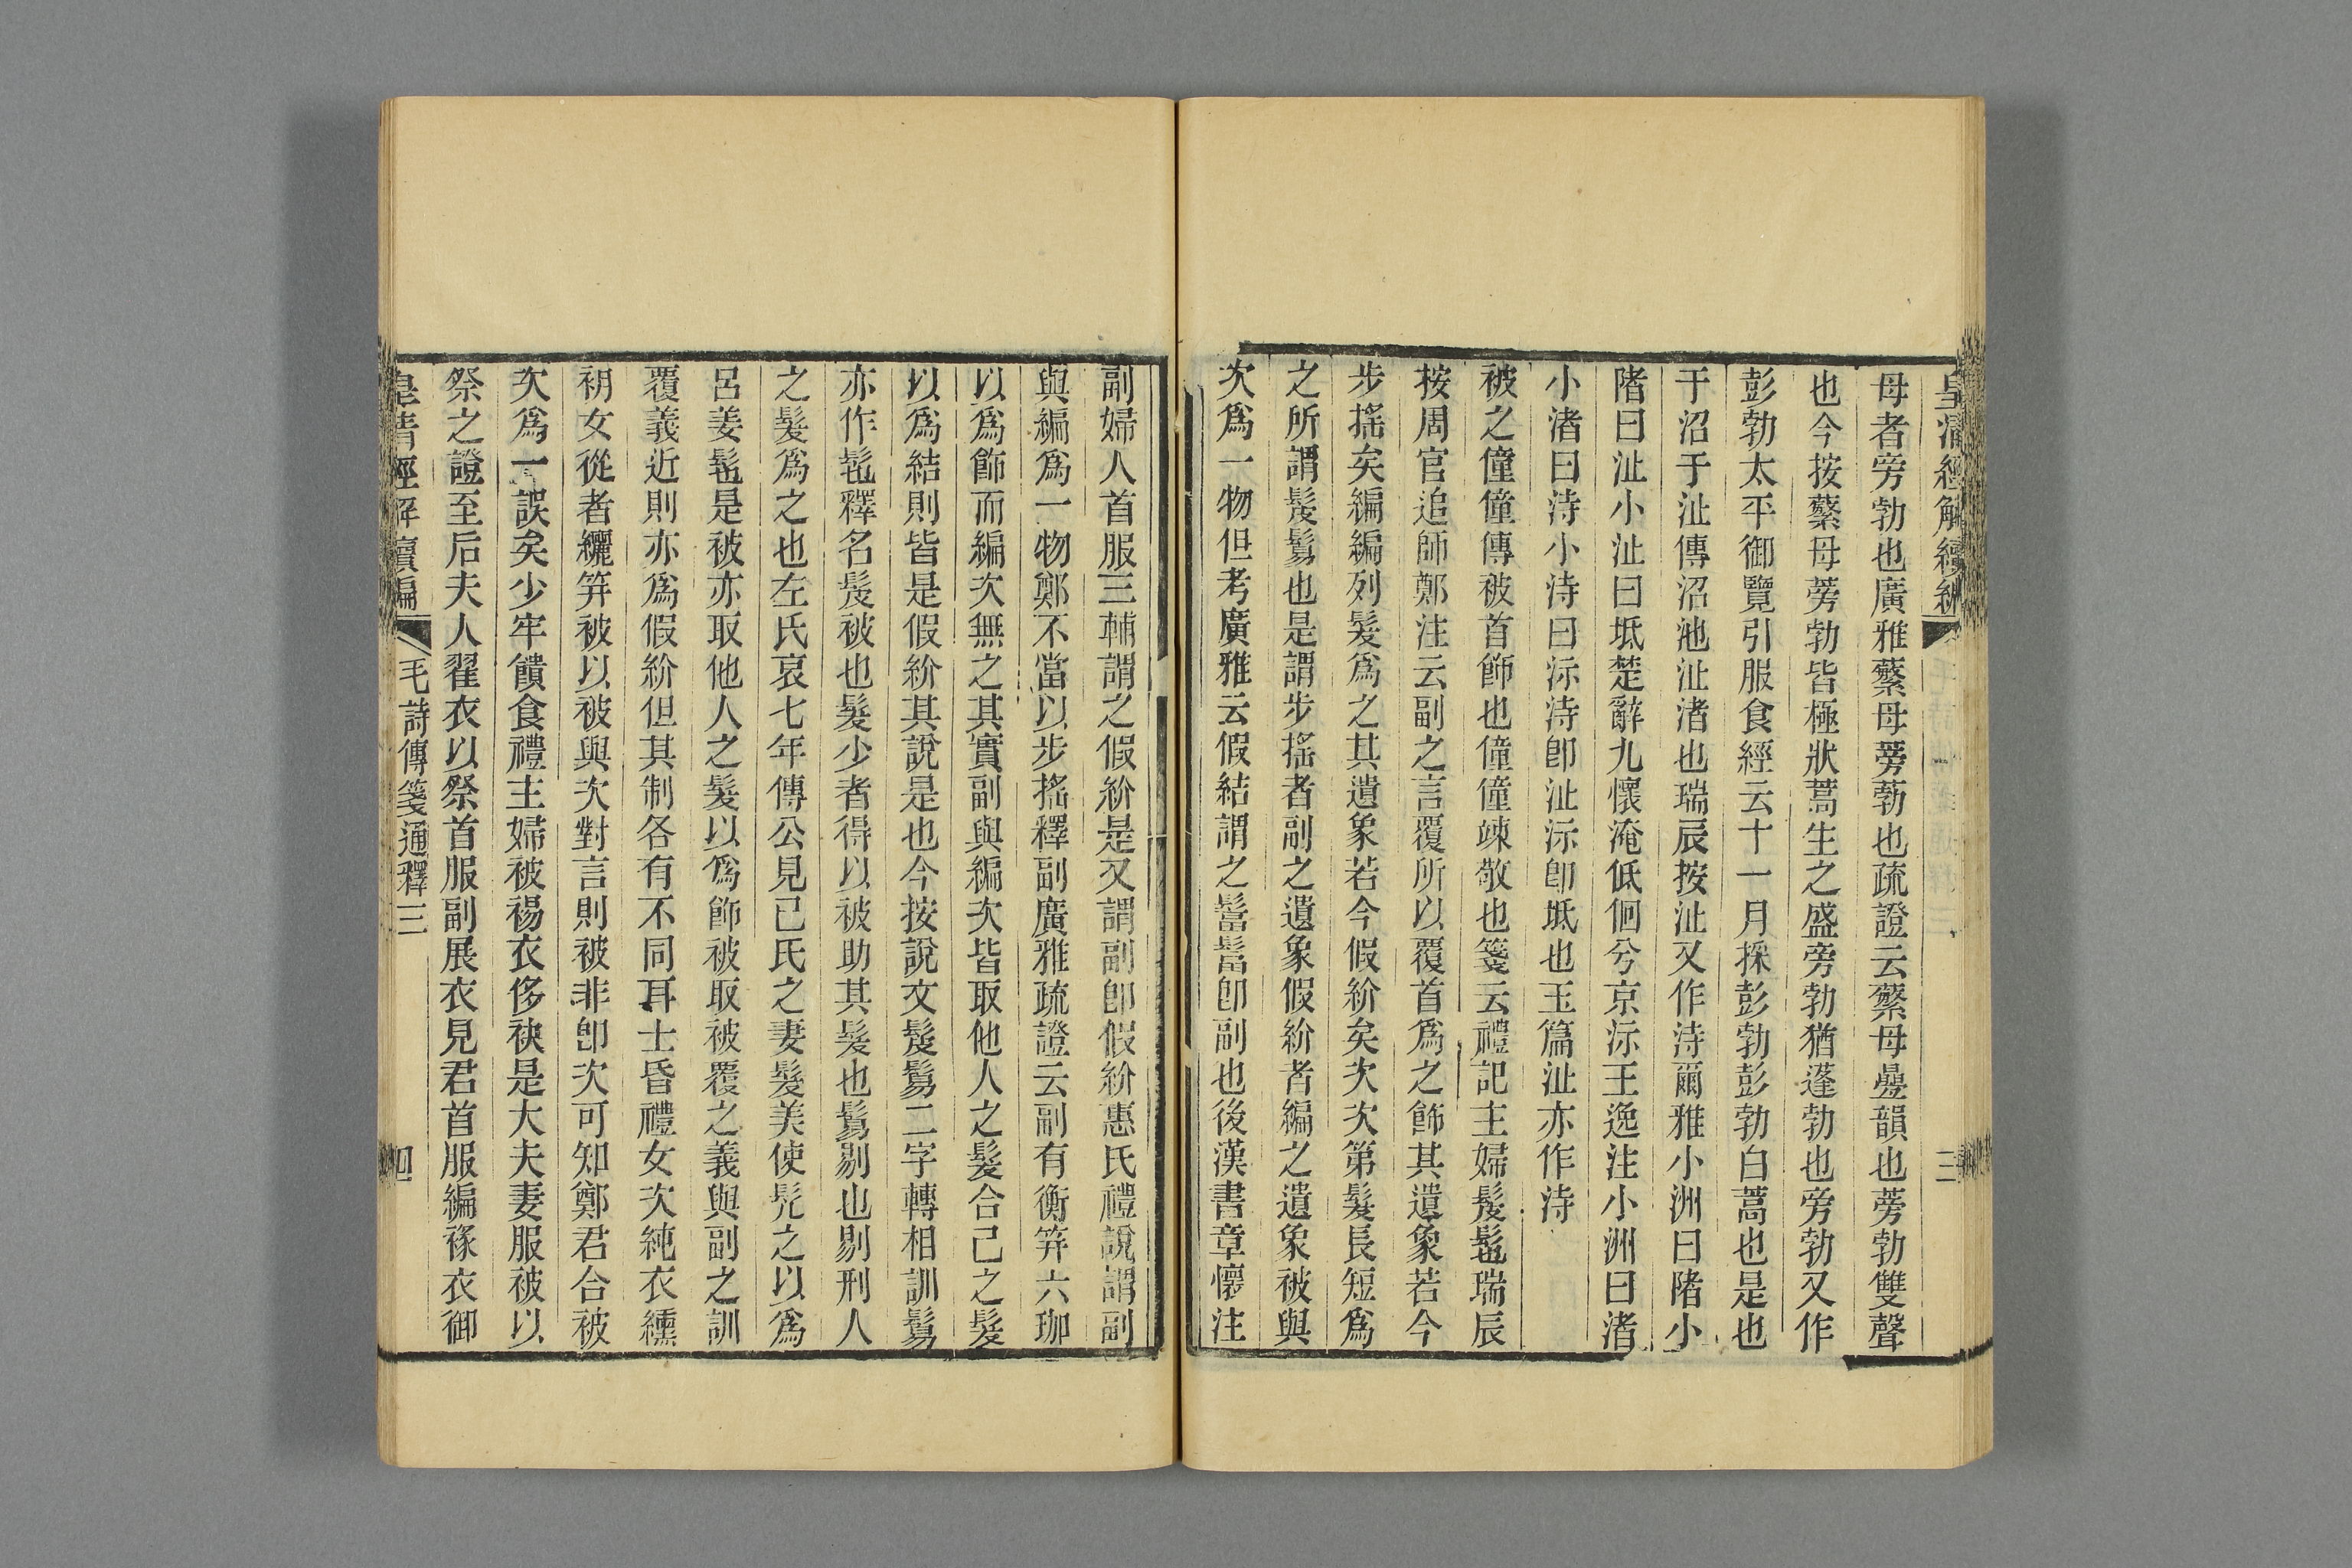 皇清經解續編
三
母者旁勃也廣雅蘩母蒡葧也疏證云蘩母疊韻也蒡勃雙聲
也今按蘩母蒡勃皆極狀蒿生之盛旁勃猶蓬勃也旁勃又作
彭勃太平御覽引服食經云十一月採彭勃彭勃白蒿也是也
于沼于沚傳沼池沚渚也瑞辰按沚又作洔爾雅小洲曰陼小
陼曰沚小沚曰坻楚辭九懷淹低佪兮京沶王逸注小洲曰渚
小渚曰洔小洔曰沶洔卽沚沶卽坻也玉篇沚亦作洔
被之僮僮傳被首飾也僮僮竦敬也箋云禮記主婦髲髢瑞辰
按周官追師鄭注云副之言覆所以覆首爲之飾其遺象若今
步搖矣編編列髮爲之其遺象若今假紒矣次次第髮長短爲
之所謂髲鬄也是謂步搖者副之遺象假紒者編之遺象被與
次爲一物但考廣雅云假結謂之䯸䯸卽副也後漢書章懷注
副婦人首服三輔謂之假紒是又謂副卽假紒惠氏禮說謂副
與編爲一物鄭不當以步搖釋副廣雅疏證云副有衡笄六珈
以爲飾而編次無之其實副與編次皆取他人之髮合己之髮
以爲結則皆是假紒其說是也今按說文髲鬄二字轉相訓鬄
亦作髢釋名髲被也髮少者得以被助其髮也鬄剔也剔刑人
之髮爲之也左氏哀七年傳公見已氏之妻髮美使髡之以爲
呂姜髢是被亦取他人之髮以爲飾被取被覆之義與副之訓
覆義近則亦爲假紒但其制各有不同耳士昏禮女次純衣纁
袡女從者纚笄被以被與次對言則被非卽次可知鄭君合被
次爲一誤矣少牢饋食禮主婦被裼衣侈袂是大夫妻服被以
祭之證至后夫人翟衣以祭首服副展衣見君首服編褖衣御
皇清經解續編
毛詩傳箋通釋三
四